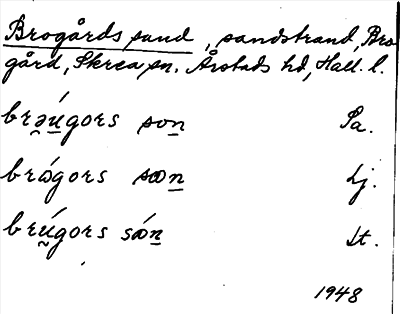 Brogårds sand, sandstrand, Bro
gård, Skrea sn. Årstads hd, Hall. l.
brəú̯gors son̲ Sa.
brǿgors sɷn̲ Lj.
brú̯gors sɷ́n̲ St.
1948